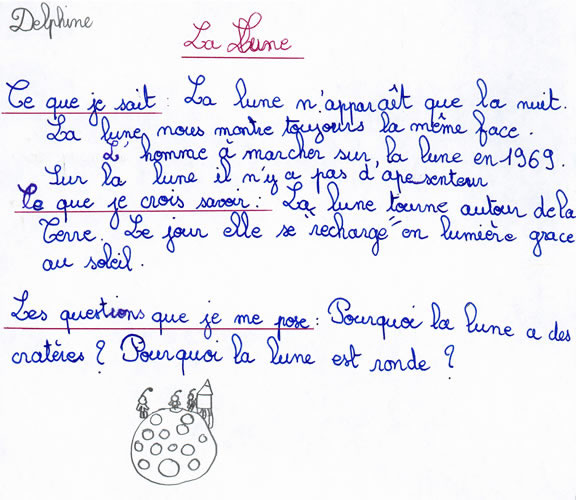 Delphine
La Lune
Ce que je sait : La lune n'apparaît que la nuit.
La lune nous montre toujours la même face.
L'homme à marcher sur la lune en 1969.
Sur la lune il n'y a pas d'apesenteur
Ce que je crois savoir : La lune tourne autour de la
Terre. Le jour elle se "recharge" en lumière grace
au soleil.
Les questions que je me pose : Pourquoi la lune a des
cratères ? Pourquoi la lune est ronde ?